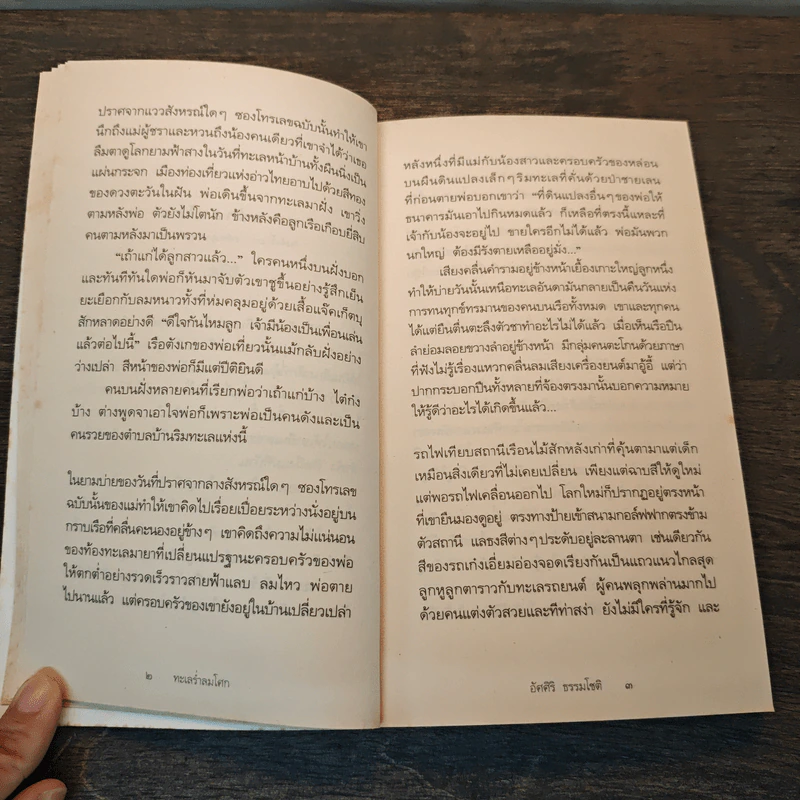 ปราศจากแววสังหรณ์ใดๆ ซองโทรเลขฉบับนั้นทำให้เขา
นึกถึงแม่ผู้ชราและหวนถึงน้องคนเดียวที่เขาจำได้ว่าเธอ
ลืมตาดูโลกยามฟ้าสางในวันที่ทะเลหน้าบ้านทั้งผืนนิ่งเป็น
แผ่นกระจก เมืองท่องเที่ยวแห่งอ่าวไทยอาบไปด้วยสีทอง
ของดวงตะวันในฝัน พ่อเดินขึ้นจากทะเลมาฝั่ง เขาวิ่ง
ตามหลังพ่อ ตัวยังไม่โตนัก ข้างหลังคือลูกเรือเกือบยี่สิบ
คนตามหลังมาเป็นพรวน
“เถ้าแก่ได้ลูกสาวแล้ว...” ใครคนหนึ่งบนฝั่งบอก
และทันทีทันใดพ่อก็หันมาจับตัวเขาชูขึ้นอย่างรู้สึกเย็น
ยะเยือกกับลมหนาวทั้งที่ห่มคลุมอยู่ด้วยเสื้อแจ๊คเก็ตบุ
สักหลาดอย่างดี “ดีใจกันไหมลูก เจ้ามีน้องเป็นเพื่อนเล่น
แล้วต่อไปนี้” เรือตังเกของพ่อเที่ยวนั้นแม้กลับฝั่งอย่าง
ว่างเปล่า สีหน้าของพ่อก็มีแต่ปีติยินดี
คนบนฝั่งหลายคนที่เรียกพ่อว่าเถ้าแก่บ้าง ไต๋ก๋ง
บ้าง ต่างพูดจาเอาใจพ่อก็เพราะพ่อเป็นคนดังและเป็น
คนรวยของตำบลบ้านริมทะเลแห่งนี้
ในยามบ่ายของวันที่ปราศจากลางสังหรณ์ใดๆ ซองโทรเลข
ฉบับนั้นของแม่ทำให้เขาคิดไปเรื่อยเปื่อยระหว่างนั่งอยู่บน
กราบเรือที่คลื่นคะนองอยู่ข้างๆ เขาคิดถึงความไม่แน่นอน
ของท้องทะเลมายาที่เปลี่ยนแปรฐานะครอบครัวของพ่อ
ให้ตกต่ำอย่างรวดเร็วราวสายฟ้าแลบ ลมไหว พ่อตาย
ไปนานแล้ว แต่ครอบครัวของเขายังอยู่ในบ้านเปลี่ยวเปล่า
๒ ทะเลร่ำลมโศก
หลังหนึ่งที่มีแม่กับน้องสาวและครอบครัวของหล่อน
บนผืนดินแปลงเล็กๆริมทะเลที่คั่นด้วยป่าชายเลน
ที่ก่อนตายพ่อบอกเขาว่า “ที่ดินแปลงอื่นๆของพ่อให้
ธนาคารมันเอาไปกินหมดแล้ว ก็เหลือที่ตรงนี้แหละที่
เจ้ากับน้องจะอยู่ไป ขายใครอีกไม่ได้แล้ว พ่อมันพวก
นกใหญ่ ต้องมีรังตายเหลืออยู่มั่ง...”
เสียงคลื่นคำรามอยู่ข้างหน้าเยื้องเกาะใหญ่ลูกหนึ่ง
ทำให้บ่ายวันนั้นเหนือทะเลอันดามันกลายเป็นคืนวันแห่ง
การทนทุกข์ทรมานของคนบนเรือทั้งหมด เขาและทุกคน
ได้แต่ยืนตื่นตะลึงตัวชาทำอะไรไม่ได้แล้ว เมื่อเห็นเรือปืน
ลำย่อมลอยขวางลำอยู่ข้างหน้า มีกลุ่มคนตะโกนด้วยภาษา
ที่ฟังไม่รู้เรื่องแหวกคลื่นลมเสียงเครื่องยนต์มาอู้อี้ แต่ว่า
ปากกระบอกปืนทั้งหลายที่จ้องตรงมานั้นบอกความหมาย
ให้รู้ดีว่าอะไรได้เกิดขึ้นแล้ว...
รถไฟเทียบสถานีเรือนไม้สักหลังเก่าที่คุ้นตามาแต่เด็ก
เหมือนสิ่งเดียวที่ไม่เคยเปลี่ยน เพียงแต่ฉาบสีให้ดูใหม่
แต่พอรถไฟเคลื่อนออกไป โลกใหม่ก็ปรากฏอยู่ตรงหน้า
ที่เขายืนมองดูอยู่ ตรงทางป้ายเข้าสนามกอล์ฟฟากตรงข้าม
ตัวสถานี แลธงสีต่างๆประดับอยู่ละลานตา เช่นเดียวกับ
สีของรถเก๋งเอี่ยมอ่องจอดเรียงกันเป็นแถวแนวไกลสุด
ลูกหูลูกตาราวกับทะเลรถยนต์ ผู้คนพลุกพล่านมากไป
ด้วยคนแต่งตัวสวยและทีท่าสง่า ยังไม่มีใครที่รู้จัก และ
อัศศิริ ธรรมโชติ ๓